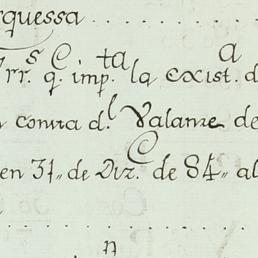 rquessa
Frr.s q.e imp.ta la exist.a d
contra d.l Valanze de
en 31,, de Diz.e de 84,, al
n